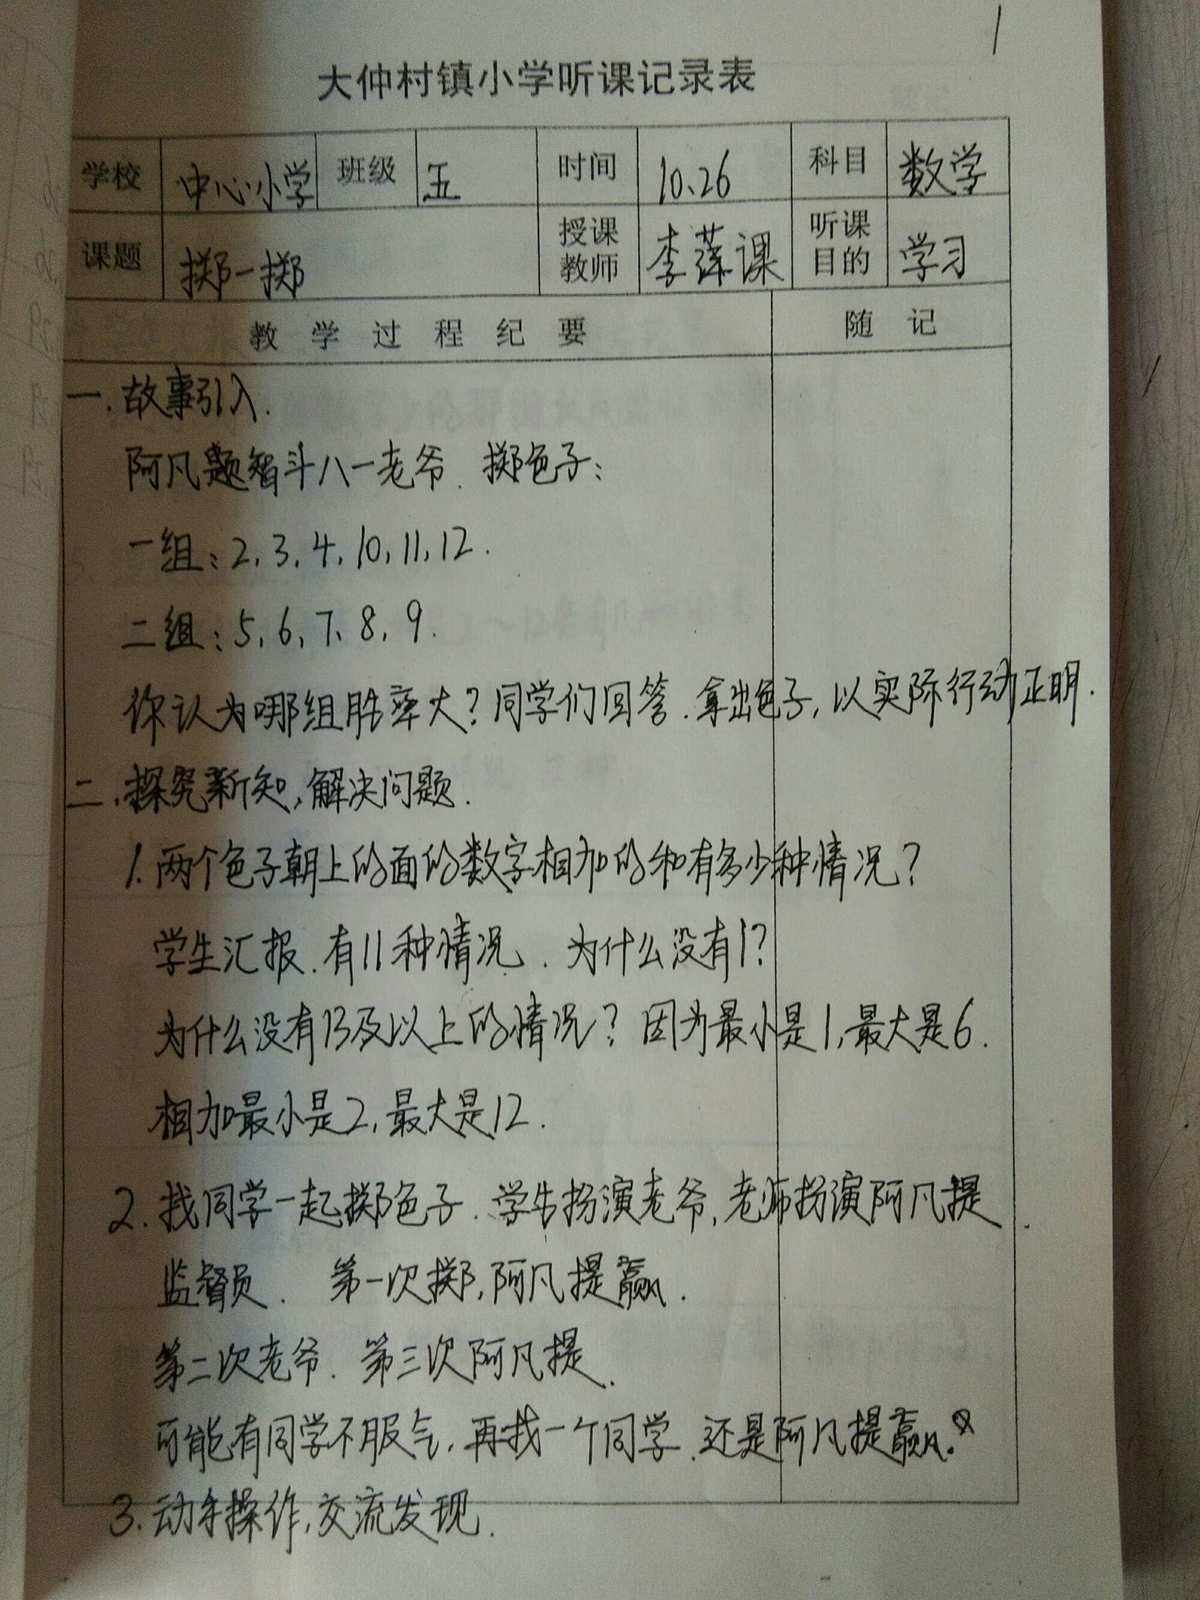 1
大仲村镇小学听课记录表
学校 中心小学 班级 五 时间 10.26 科目 数学
课题 掷一掷 授课教师 李莲课 听课目的 学习
教学过程纪要 随记
一.故事引入.
阿凡题智斗八一老爷.掷色子:
一组:2,3,4,10,11,12.
二组:5,6,7,8,9.
你认为哪组胜率大?同学们回答.拿出色子,以实际行动正明.
二.探究新知,解决问题.
1.两个色子朝上的面的数字相加的和有多少种情况?
学生汇报.有11种情况.为什么没有1?
为什么没有13及以上的情况?因为最小是1,最大是6.
相加最小是2,最大是12.
2.找同学一起掷色子.学生扮演老爷,老师扮演阿凡提
监督员.第一次掷,阿凡提赢.
第二次老爷.第三次阿凡提.
可能有同学不服气.再找一个同学.还是阿凡提赢.
3.动手操作,交流发现.